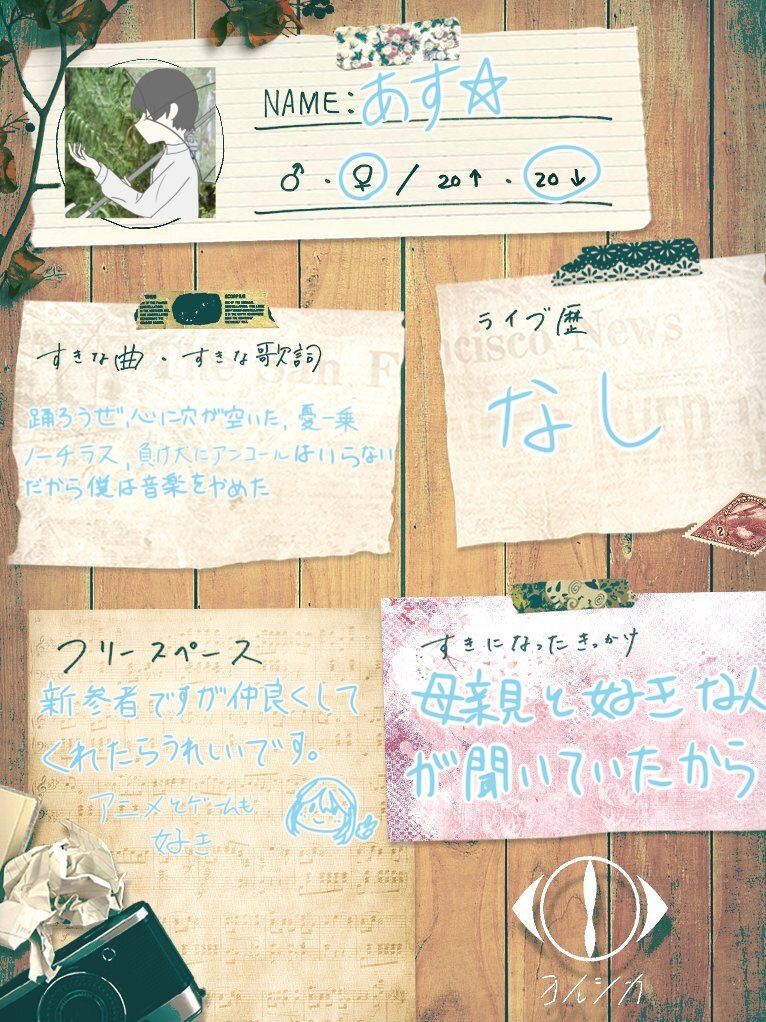 NAME:あす☆
♂・♀/20↑・20↓
すきな曲・すきな歌詞
踊ろうぜ,心に穴が空いた,憂一乗
ノーチラス,負け犬にアンコールはいらない
だから僕は音楽をやめた
ライブ歴
なし
フリースペース
新参者ですが仲良くして
くれたらうれしいです。
アニメとゲームも
好き
すきになったきっかけ
母親と好きな人
が聞いていたから
ヨルシカ